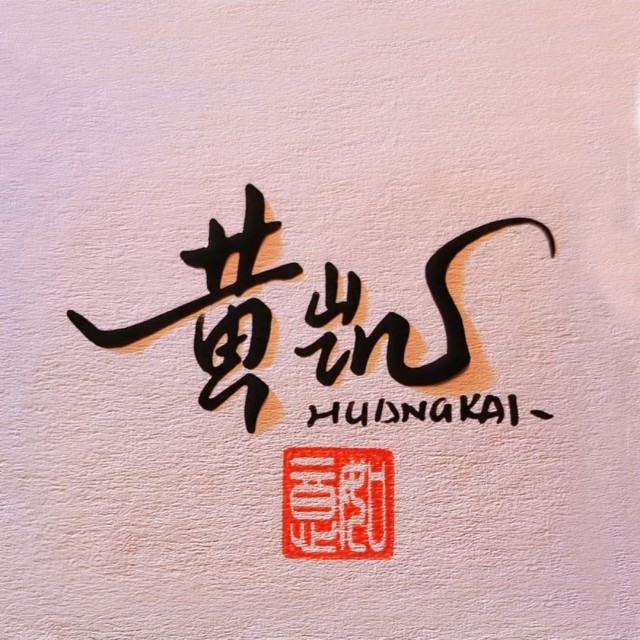 黄凯
HUANGKAI